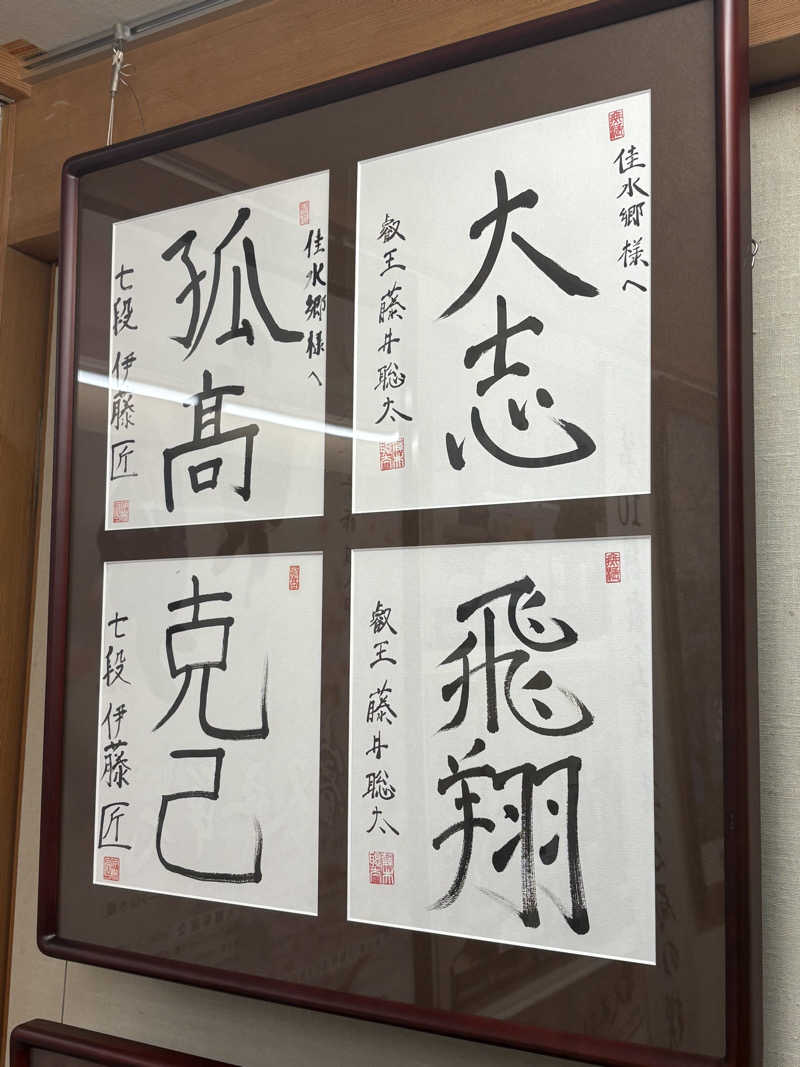 佳水郷様へ
大志
叡王 藤井聡太
佳水郷様へ
孤高
七段 伊藤匠
飛翔
叡王 藤井聡太
克己
七段 伊藤匠